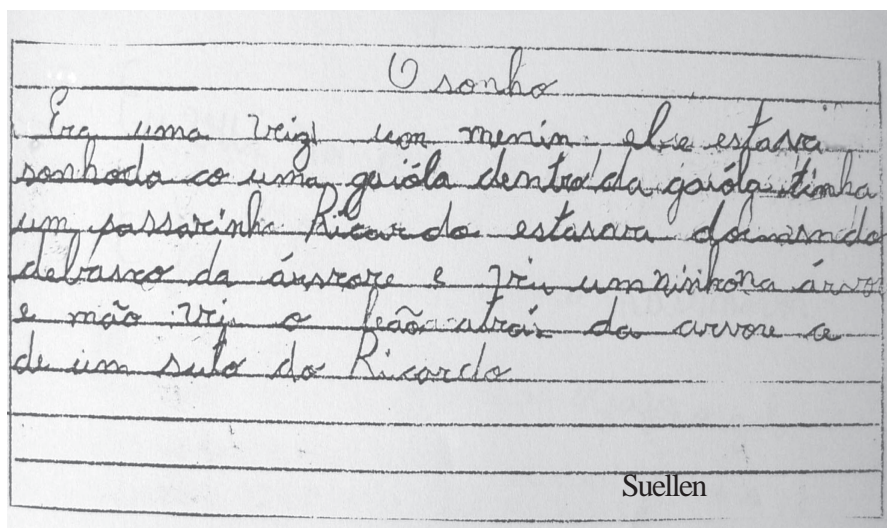 O sonho
Era uma veiz um menin ele estava
sonhodo co uma gaióla dentro da gaióla tinha
um passarinho Ricardo estasava domindo
debaxco da árvore e viu um ninhona árvo
e mão viu o leão atrais da arvore a
de um sulo do Ricardo
Suellen